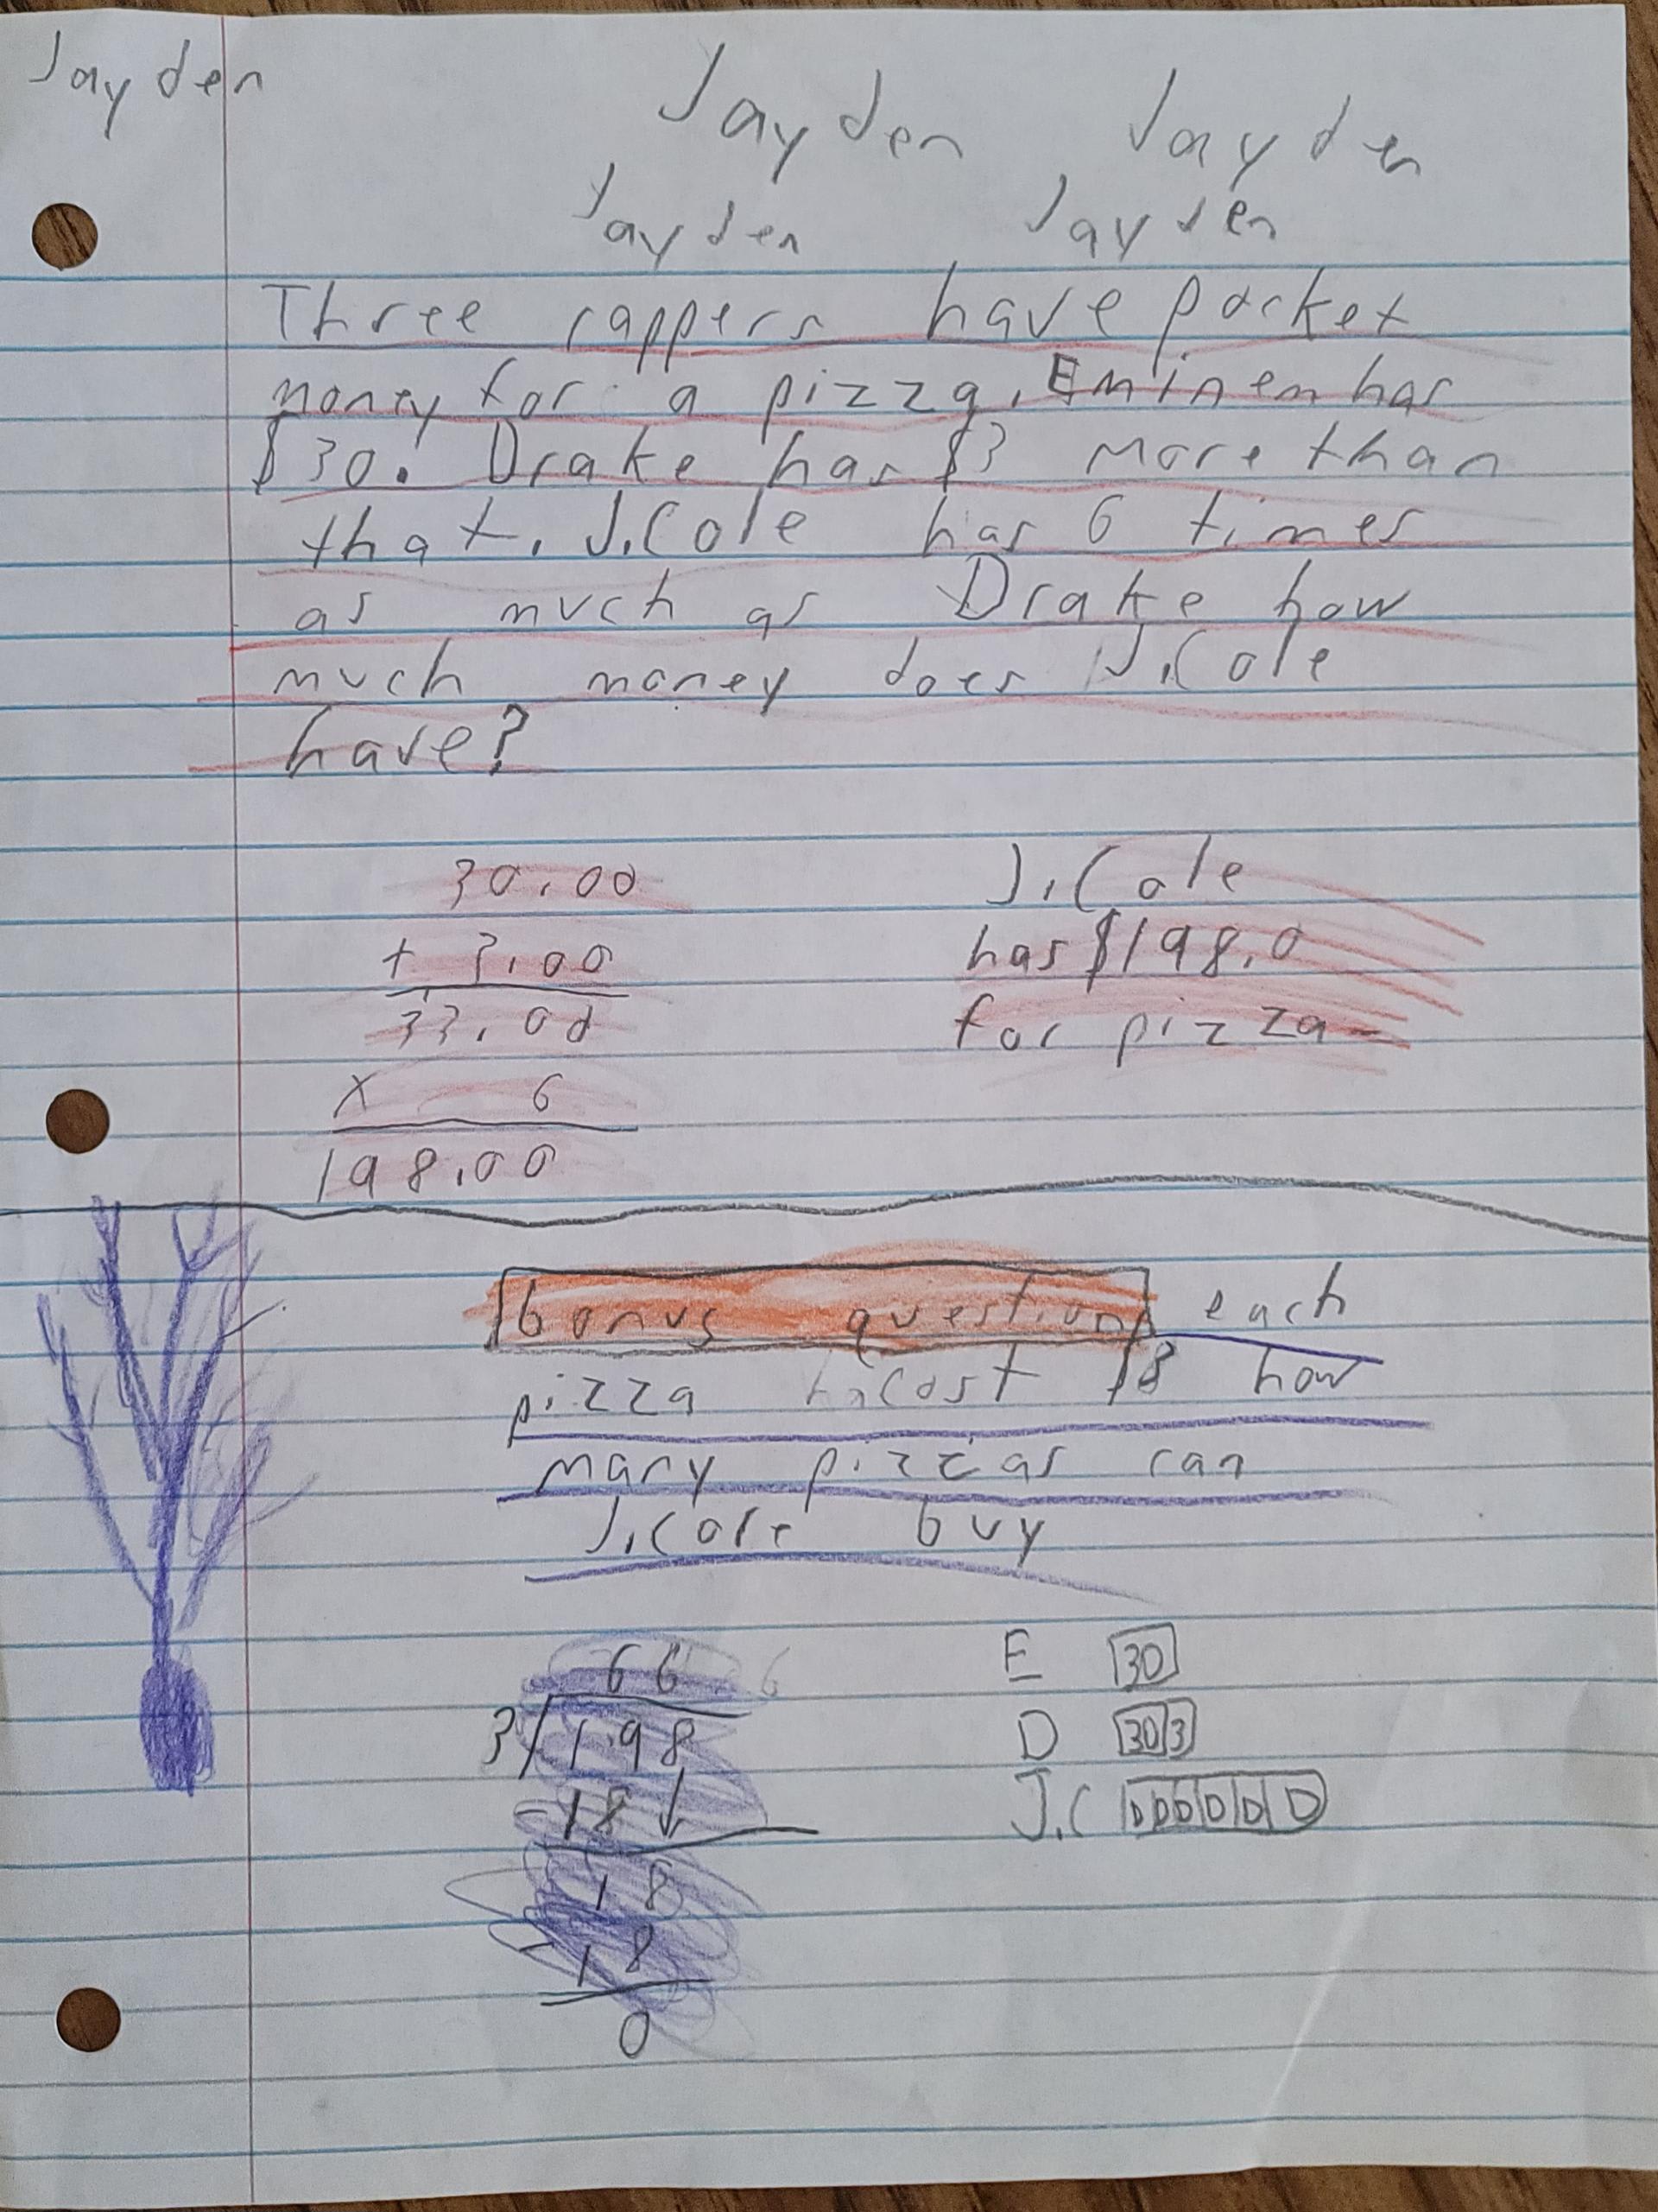 Jayden
Jayden Jayden
Jayden Jayden
Three rappers have pocket
money for a pizza. Eminem has
$30. Drake has $3 more than
that. J.Cole has 6 times
as much as Drake how
much money does J.Cole
have?
30.00
+ 3.00
33.00
x 6
198.00
J.Cole
has $198.0
for pizza
bonus question each
pizza cost $3 how
many pizzas can
J.Cole buy
66 6
3 198
-18
18
-18
0
E 30
D 30 3
J.C D D D D D D